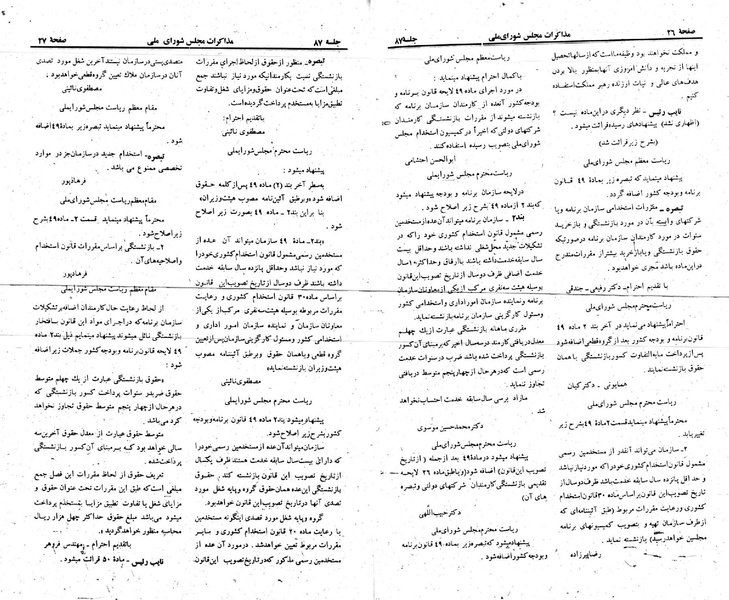 صفحهٔ ۲۶
مذاکرات مجلس شورای ملی
جلسه ۸۷
و مملکت نخواهند بود وظیفه ما است که از سالها تحصیل
اینها از تجربه و دانش امروزی آنها بمنظور بالا بردن
هدف‌های عالی و نیات ارزنده رهبر مملکت استفاده
کنیم.
نایب رئیس - نظر دیگری در این ماده نیست ؟
(اظهاری نشد) پیشنهادهای رسیده قرائت میشود.
(بشرح زیر قرائت شد)
ریاست معظم مجلس شورای ملی
پیشنهاد میکند که تبصره زیر بمادهٔ ۴۹ قانون
برنامه و بودجه کشور اضافه گردد.
تبصره - مقررات استخدامی سازمان برنامه و یا
شرکتهای وابسته بآن در مورد بازنشستگی و بازخرید
سنوات در مورد کارمندان سازمان برنامه در صورتیکه
حقوق بازنشستگی و یا بازخرید بیشتر از مقررات مندرج
در این ماده باشد مجری خواهد بود.
با تقدیم احترام - دکتر رفیعی - جندقی
ریاست محترم مجلس شورای ملی
احتراماً پیشنهاد می‌نماید در آخر بند ۲ ماده ۴۹
قانون برنامه و بودجه کشور بعد از گروه قطعی اضافه شود
پس از پرداخت مابه‌التفاوت کسور بازنشستگی با همان
همایونی - دکتر کیان
ریاست محترم مجلس شورای ملی
محترماً پیشنهاد مینماید قسمت ۲ مادهٔ ۴۹ بشرح زیر
تغییر یابد.
۲- سازمان می‌تواند آنقدر از مستخدمین رسمی
مشمول قانون استخدام کشوری خود را که مورد نیاز نباشد
و حداقل پانزده سال سابقه خدمت داشته باشند ظرف دو سال از
تاریخ تصویب این قانون بر اساس ماده ۳۰ قانون استخدام
کشوری و رعایت مقررات مربوط (طبق آئین‌نامه‌ای که
از طرف سازمان تهیه و بتصویب کمیسیونهای برنامه
مجلسین خواهد رسید) بازنشسته نماید.
رضا پیرزاده
ریاست معظم مجلس شورای ملی
با کمال احترام پیشنهاد مینماید :
در مورد اجرای ماده ۴۹ لایحه قانون برنامه و
بودجه کشور آنعده از کارمندان سازمان برنامه که
بازنشسته میشوند از مقررات بازنشستگی کارمندان
شرکتهای دولتی که اخیراً در کمیسیون استخدام مجلس
شورای ملی بتصویب رسیده استفاده کنند.
ابوالحسن احتشامی
ریاست محترم مجلس شورای ملی
در لایحه سازمان برنامه و بودجه پیشنهاد میشود
که بند ۲ از ماده ۴۹ بشرح زیر اصلاح شود.
بند ۲ - سازمان برنامه میتواند آن عده از مستخدمین
رسمی مشمول قانون استخدام کشوری خود را که در
تشکیلات جدید محل شغلی نداشته باشند و حداقل بیست
سال سابقه خدمت داشته باشند با ارفاق و حداکثر ۱۰ سال
خدمت اضافی ظرف دو سال از تاریخ تصویب این قانون
بوسیله هیئت سه‌نفری مرکب از یکی از معاونان سازمان
برنامه و نماینده سازمان امور اداری و استخدامی کشور
و مسئول کارگزینی سازمان برنامه بازنشسته نماید.
مقرری ماهانه بازنشستگی عبارت از یک چهلم
معدل دریافتی کارمند در سه سال اخیر که بر مبنای آن کسور
بازنشستگی پرداخت شده باشد ضرب در سنوات خدمت
رسمی است که در هر حال از چهار پنجم متوسط دریافتی
تجاوز ننماید.
مازاد بر سی سال سابقه خدمت احتساب نخواهد
شد.
دکتر محمدحسین موسوی
ریاست محترم مجلس شورای ملی
پیشنهاد میشود در ماده ۴۹ بعد از جمله (از تاریخ
تصویب این قانون) اضافه شود (و یا طبق ماده ۲۶ لایحه
تقدیمی بازنشستگی کارمندان شرکتهای دولتی و تبصره
های آن)
دکتر حبیب‌اللهی
ریاست محترم مجلس شورای ملی
پیشنهاد میشود که تبصره زیر بماده ۴۹ قانون برنامه
و بودجه کشور اضافه شود.
جلسه ۸۷
مذاکرات مجلس شورای ملی
صفحهٔ ۲۷
تبصره - منظور از حقوق از لحاظ اجرای مقررات
بازنشستگی نسبت بکارمندانیکه مورد نیاز نباشند جمع
مبلغی است که تحت عنوان حقوق و مزایای شغل و تفاوت
تطبیق مزایا به مستخدم پرداخت گردیده است.
باتقدیم احترام :
مصطفوی نائینی
ریاست محترم مجلس شورایملی
پیشنهاد میشود :
به سطر آخر بند (۲) ماده ۴۹ پس از کلمه حقوق
اضافه شود و برطبق آئین‌نامه مصوب هیئت وزیران،
بنابراین بند ۲ - مادهٔ ۴۹ بصورت زیر اصلاح
میشود :
«بند ۲- مادهٔ ۴۹ سازمان میتواند آن عده از
مستخدمین رسمی مشمول قانون استخدام کشوری خود را
که مورد نیاز نباشد و حداقل پانزده سال سابقه خدمت
داشته باشند ظرف دو سال از تاریخ تصویب این قانون
بر اساس ماده ۳۰ قانون استخدام کشوری و رعایت
مقررات مربوطه بوسیله هیئت سه‌نفری مرکب از یکی از
معاونان سازمان و نماینده سازمان امور اداری و
استخدامی کشور و مسئول کارگزینی سازمان پس از تعیین
گروه قطعی و با همان حقوق و برطبق آئین‌نامه مصوب
هیئت وزیران بازنشسته نماید»
مصطفوی نائینی
ریاست محترم مجلس شورایملی
پیشنهاد میشود بند ۲ مادهٔ ۴۹ قانون برنامه و بودجه
کشور بشرح زیر اصلاح شود.
سازمان میتواند آن عده از مستخدمین رسمی خود را
که دارای بیست سال سابقه خدمت هستند ظرف یکسال
از تاریخ تصویب این قانون بازنشسته کند. حقوق
بازنشستگی این عده همان حقوق و پایه شغل مورد
تصدی آنها در تاریخ تصویب این قانون خواهد بود.
گروه و پایه شغل مورد تصدی اینگونه مستخدمین
با رعایت ماده ۲۰ قانون استخدام کشوری و سایر
مقررات مربوط تعیین خواهد شد. در مورد آن عده از
مستخدمین رسمی مذکور که در تاریخ تصویب این قانون
متصدی پستی در سازمان نیستند آخرین شغل مورد تصدی
آنان در سازمان ملاک تعیین گروه قطعی خواهد بود.
مصطفوی نائینی
مقام معظم ریاست مجلس شورای ملی
محترماً پیشنهاد مینماید تبصره زیر بماده ۴۹ اضافه
شود.
تبصره - استخدام جدید در سازمان جز در موارد
تخصصی ممنوع می باشد.
فرهادپور
مقام معظم ریاست مجلس شورای ملی
محترماً پیشنهاد مینماید. قسمت ۲- ماده ۴۹ بشرح
زیر اصلاح شود.
۲- بازنشستگی بر اساس مقررات قانون استخدام
و اصلاحیه‌های آن.
فرهادپور
مقام معظم ریاست مجلس شورایملی
از لحاظ رعایت حال کارمندان اضافه بر تشکیلات
سازمان برنامه که در اجرای مواد این قانون با افتخار
بازنشستگی نائل میشوند پیشنهاد مینمایم ذیل بند ۲ ماده
۴۹ لایحه قانون برنامه و بودجه کشور جملات زیر اضافه
شود :
«حقوق بازنشستگی عبارت از یک چهلم متوسط
حقوق ضربدر سنوات پرداخت کسور بازنشستگی که
در هر حال از چهار پنجم متوسط حقوق تجاوز نخواهد
کرد می‌باشد.
متوسط حقوق عبارت از معدل حقوق آخرین سه
سالی خواهد بود که بر مبنای آن کسور بازنشستگی
پرداخت شده.
تعریف حقوق از لحاظ مقررات این فصل جمع
مبلغی است که طبق این مقررات تحت عنوان حقوق و
مزایای شغل یا تفاوت تطبیق مزایا به مستخدم پرداخت
میشود می‌باشد مبلغ حقوق حداکثر چهل هزار ریال
محاسبه منظور خواهد گردید»
باتقدیم احترام - مهندس فروهر
نایب رئیس - مادهٔ ۵۰ قرائت میشود.